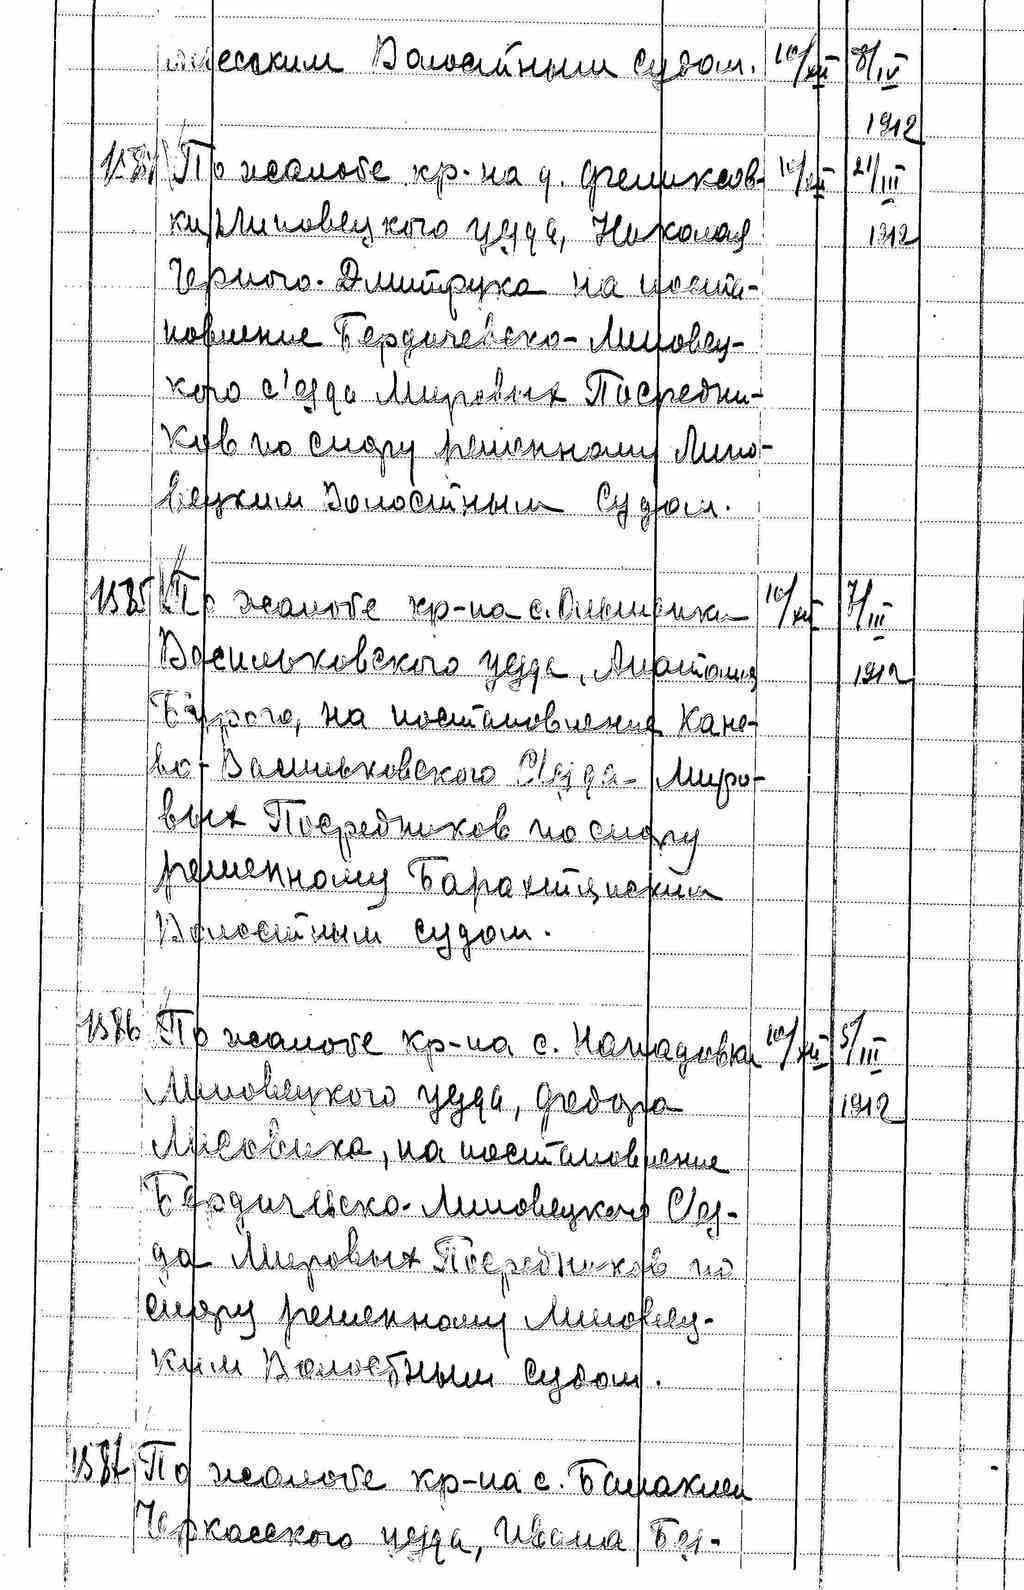 есским Волостным судом. 10/XII 8/IV
1912
1384 По жалобе кр-на д. Феликсов- 10/XII 21/III
ки, Липовецкого уезда, Николая 1912
Черного-Дмитрука на поста-
новление Бердичевско-Липовец-
кого с'езда Мировых Посредни-
ков по спору решенному Липо-
вецким Волостным Судом.
1385 По жалобе кр-на с. Ольшанки 10/XII 7/III
Васильковского уезда, Анатолия 1912
на постановление Кане-
во-Васильковского С'езда Миро-
вых Посредников по спору
решенному Барахтянским
Волостным судом.
1386 По жалобе кр-на с. Нападовки 10/XII 5/III
Липовецкого уезда, Федора 1912
Лисовика, на постановление
Бердичевско-Липовецкого С'ез-
да Мировых Посредников по
спору решенному Липовец-
ким Волостным судом.
1387 По жалобе кр-на с. Балаклеи
Черкасского уезда, Ивана Без-